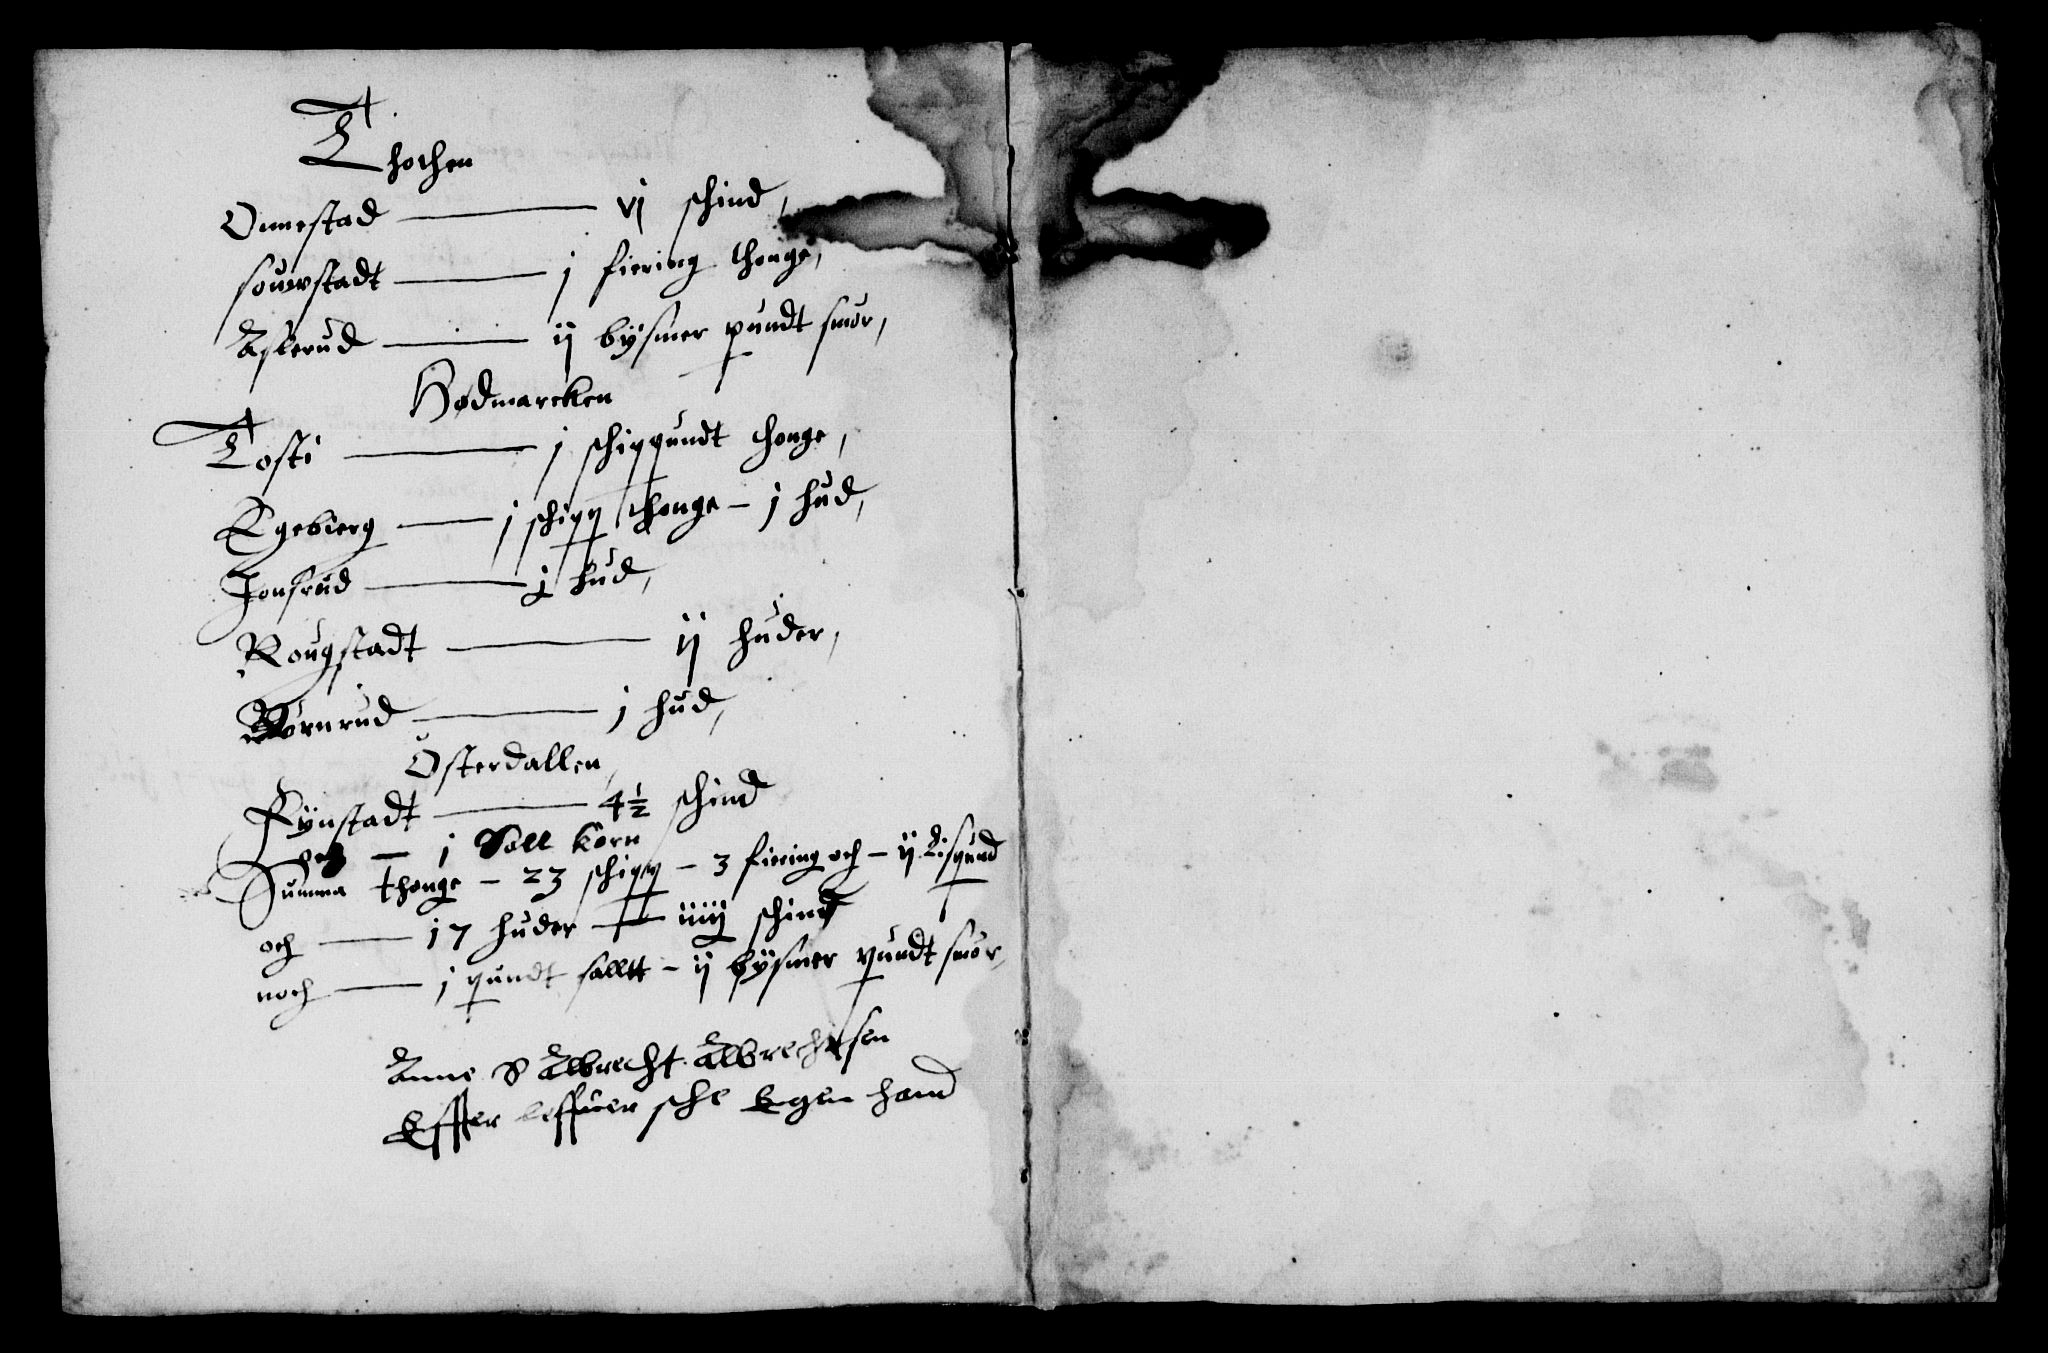 Thothen
Onnestad — vj schind,
souerstadt — j fiering thonge,
Aslerud — ij bysmer pundt smør,
Hødmarcken
Tosti — j schippundt thonge,
Egebierg — j schipp thonge – j hud,
Jonsrud — j hud,
Rougstadt — ij huder,
Børnrud — j hud,
Østerdallen,
Rynstadt — 4½ schind
och — j Sæll korn
Summa thonge – 23 schipp – 3 fiering och – ij Lispund
och — 17 huder — iiij schind
noch — j pundt salltt – ij bysmer pundt smør,
Anne S Albrecht Albrechtsen
Effter leffuer sche Egen hand